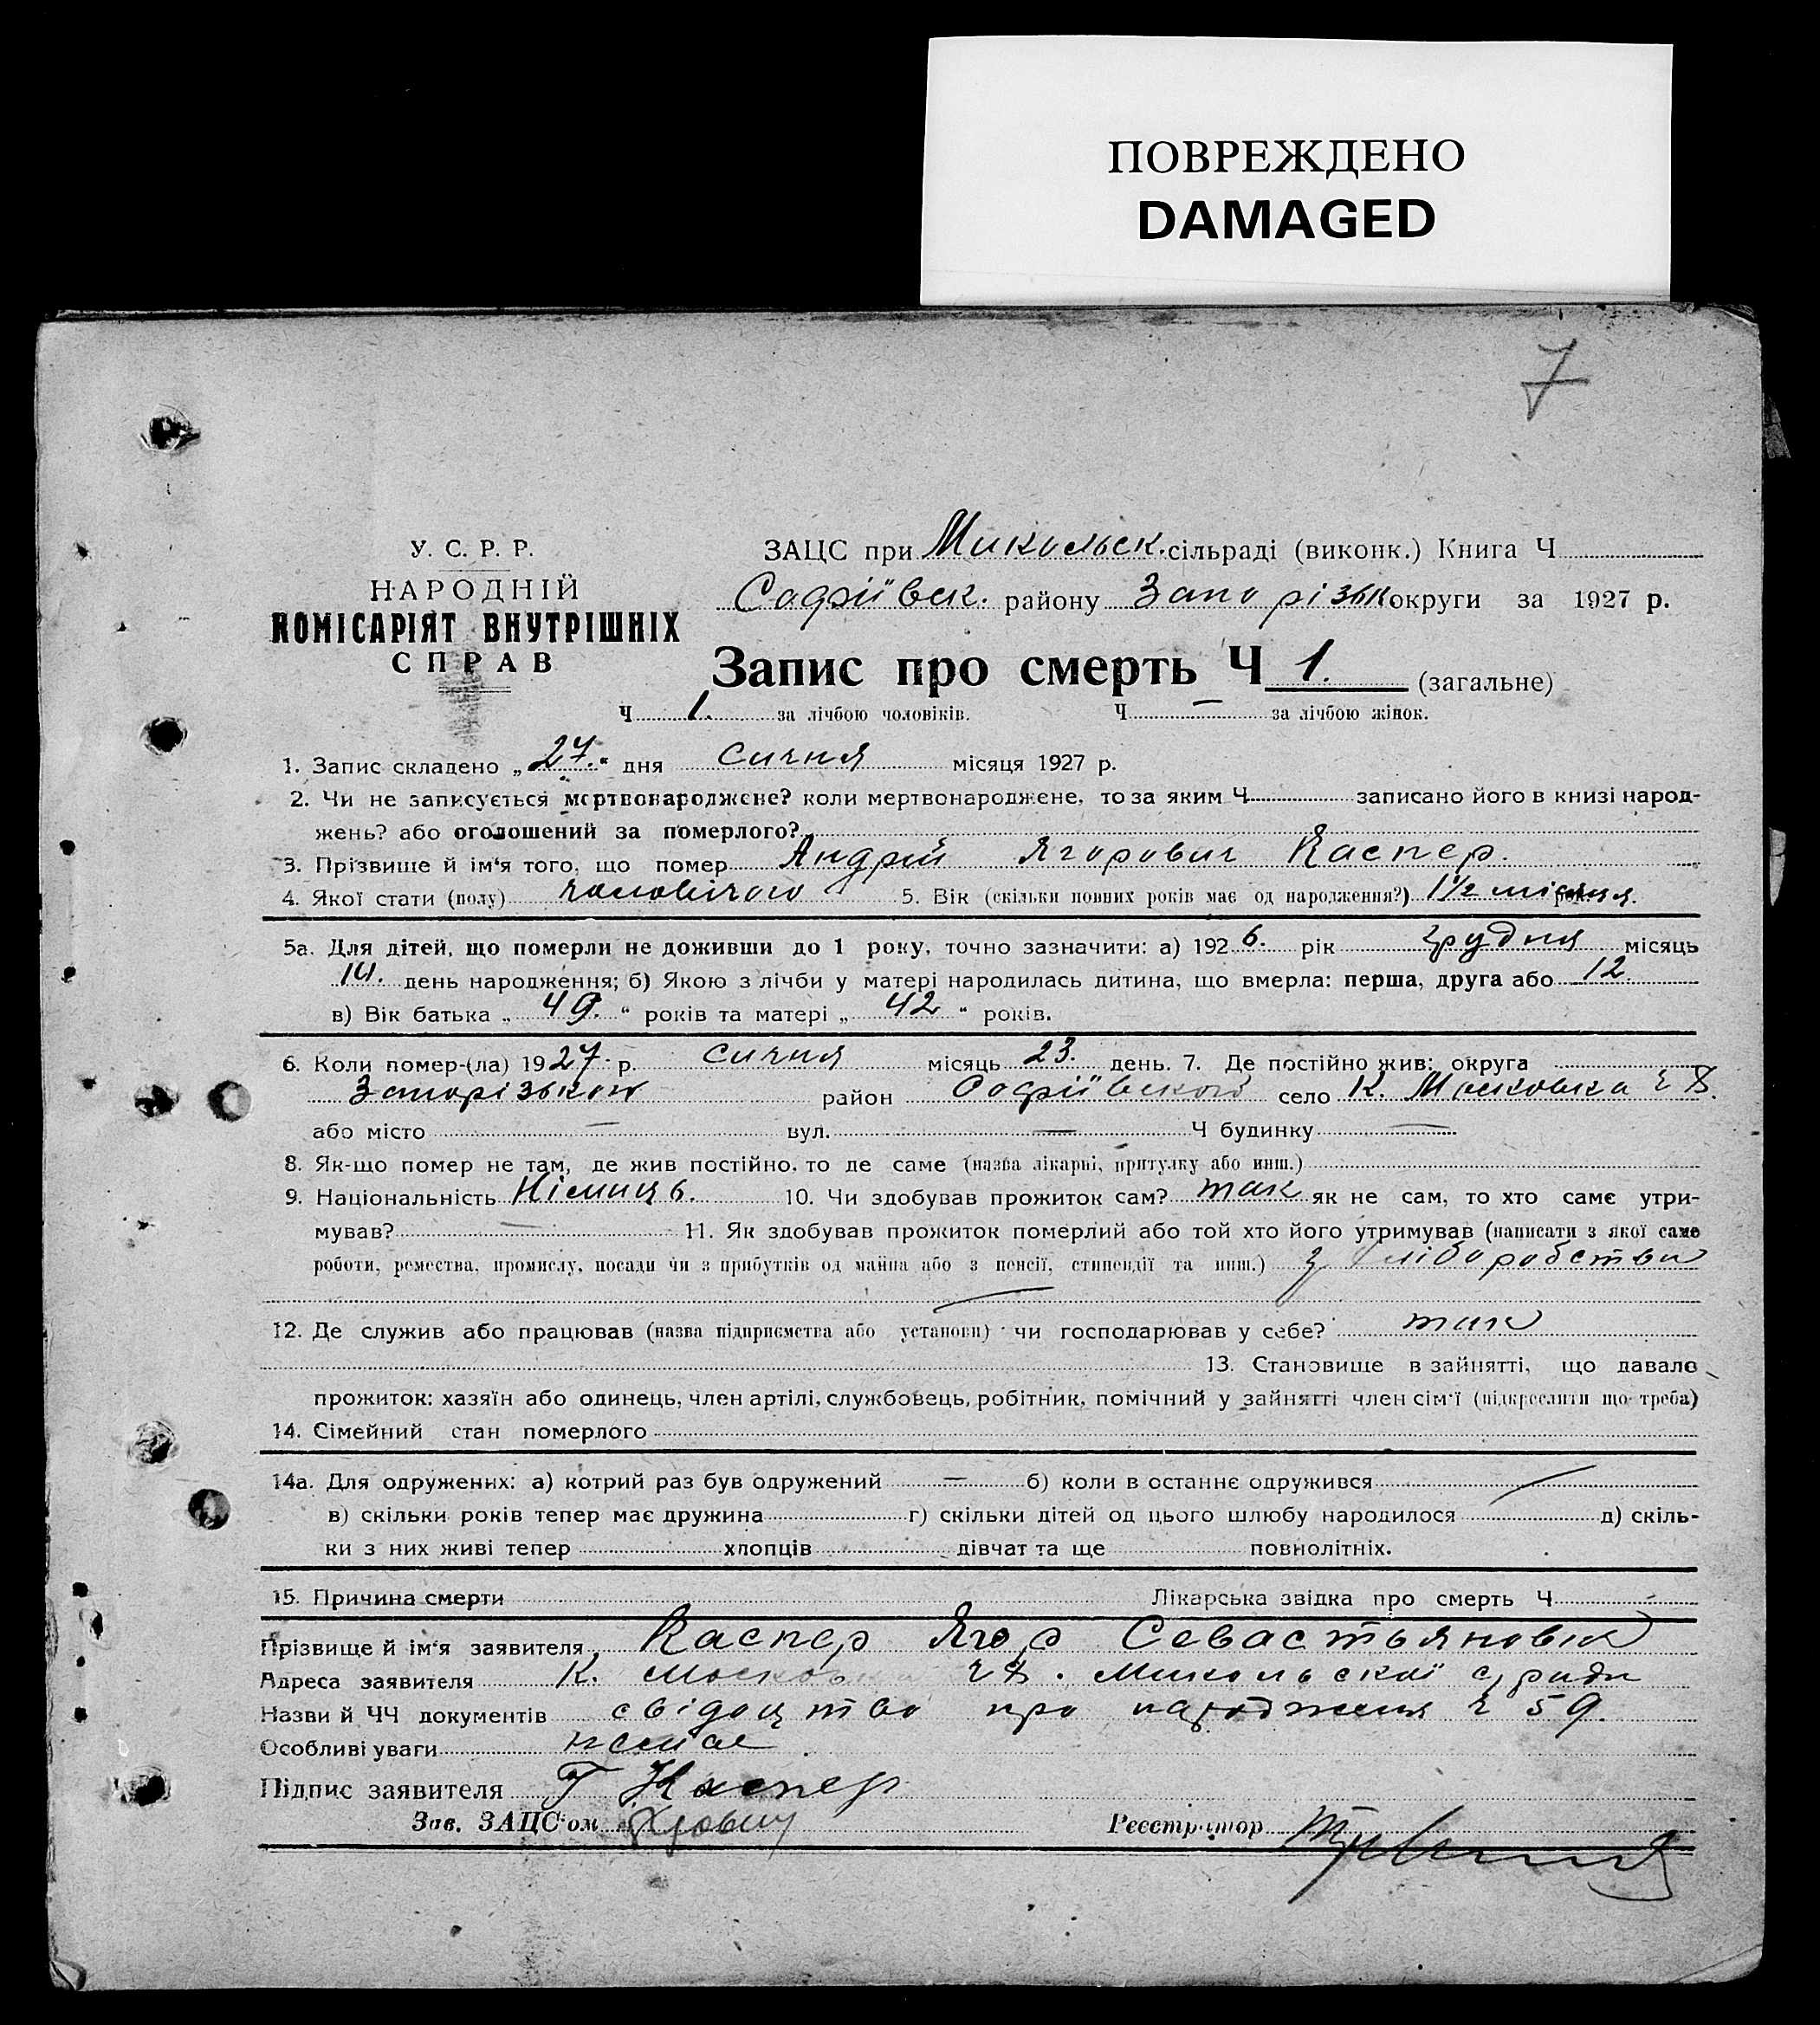 ПОВРЕЖДЕНО
DAMAGED
7
У. С. Р. Р.
НАРОДНІЙ
КОМІСАРІЯТ ВНУТРІШНІХ
СПРАВ
ЗАЦС при Микольск. сільраді (виконк.) Книга Ч
Софіївск. району Запорізьк округи за 1927 р.
Запис про смерть Ч 1. (загальне)
Ч 1. за лічбою чоловіків. Ч — за лічбою жінок.
1. Запис складено „27.“ дня сичня місяця 1927 р.
2. Чи не записується мертвонароджене? коли мертвонароджене, то за яким Ч записано його в книзі народ-
жень? або оголошений за померлого?
3. Прізвище й ім'я того, що помер Андрій Ягорович Каспер.
4. Якої стати (полу) чоловічого 5. Вік (скільки повних років має од народження?) 1½ місяця.
5а. Для дітей, що померли не доживши до 1 року, точно зазначити: а) 1926. рік грудня місяць
14. день народження; б) Якою з лічби у матері народилась дитина, що вмерла: перша, друга або 12.
в) Вік батька „49.“ років та матері „42“ років.
6. Коли помер-(ла) 1927 р. сичня місяць 23. день. 7. Де постійно жив: округа
Запорізькой район Софіївской село К. Московка ч 8.
або місто — вул. — Ч будинку —
8. Як-що помер не там, де жив постійно, то де саме (назва лікарні, притулку або инш.)
9. Національність Німиць. 10. Чи здобував прожиток сам? так як не сам, то хто саме утри-
мував? — 11. Як здобував прожиток померлий або той хто його утримував (написати з якої саме
роботи, ремества, промислу, посади чи з прибутків од майна або з пенсії, стипендії та инш.) з хліборобства
12. Де служив або працював (назва підприємства або установи) чи господарював у себе? так
13. Становище в зайнятті, що давало
прожиток: хазяїн або одинець, член артілі, службовець, робітник, помічний у зайнятті член сім'ї (підкреслити що треба)
14. Сімейний стан померлого
14а. Для одружених: а) котрий раз був одружений — б) коли в останнє одружився
в) скільки років тепер має дружина г) скільки дітей од цього шлюбу народилося д) скіль-
ки з них живі тепер хлопців дівчат та ще повнолітніх.
15. Причина смерти Лікарська звідка про смерть Ч
Прізвище й ім'я заявителя Каспер Ягор Севастьянович
Адреса заявителя К. Московка ч 8. Микольскої с/ради
Назви й ЧЧ документів свідоцтво про народження ч 59.
Особливі уваги немає
Підпис заявителя Г Каспер
Зав. ЗАЦС'ом
Реєстратор